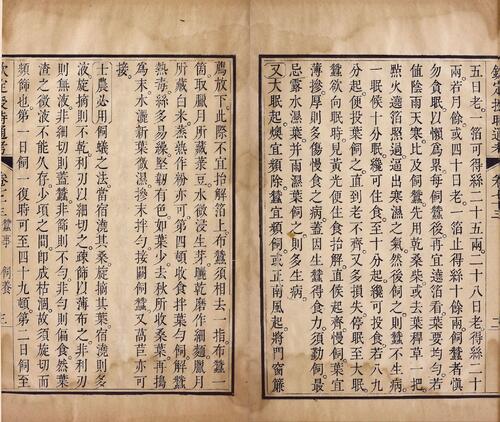 五日老一箔可得絲二十五兩二十八日老得絲二十
兩若月餘或四十日老一箔止得絲十餘兩飼蠶者慎
勿貪眠以懶為累每飼蠶後再宜遶箔看葉要均勻若
值陰雨天寒比及飼蠶先用乾桑柴或去葉稈草一把
點火遶箔照過逼出寒濕之氣然後飼之則蠶不生病
一眠候十分眠纔可住食至十分起纔可投食若八九
分起便投葉飼之直到老不齊又多損失停眠至大眠
蠶欲向眠時見黃光便住食抬解直候起齊慢飼葉宜
薄摻厚則多傷慢食之病蓋因生蠶得食力須勤飼最
忌露水濕葉并雨濕葉飼之則多生病
又大眠起燠宜頻除蠶宜頻飼或正南風起將門窗簾
薦放下此際不宜抬解箔上布蠶須相去一指布蠶一
箇取臘月所藏菉豆水微浸生芽曬乾磨作細麵臘月
所藏白米蒸熟作粉亦可第四頓收食拌葉勻飼解蠶
熱毒絲多易繰堅韌有色如葉少去秋所收桑葉再搗
為末水灑新葉微濕摻末拌勻接闕飼蠶又萵苣亦可
接
士農必用飼蟻之法當宿澆其桑旋摘其葉宿澆則多
液旋摘則不乾利刃以細切之疎篩以薄布之非利刃
則無液非細切則蓋蠶非篩則不勻非勻則偏食然葉
渣之微液不能久存少頃之間即成枯涸故須旋切而
頻篩也第一日飼一復時可至四十九頓第二日飼至
欽定授時通考 蠶事 飼養 三